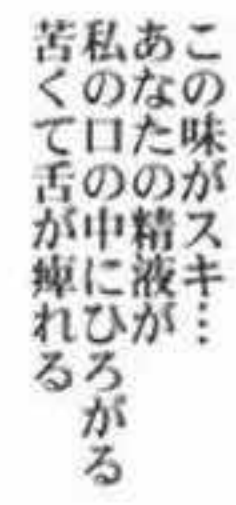 この味がスキ…
あなたの精液が
私の口の中にひろがる
苦くて舌が痺れる